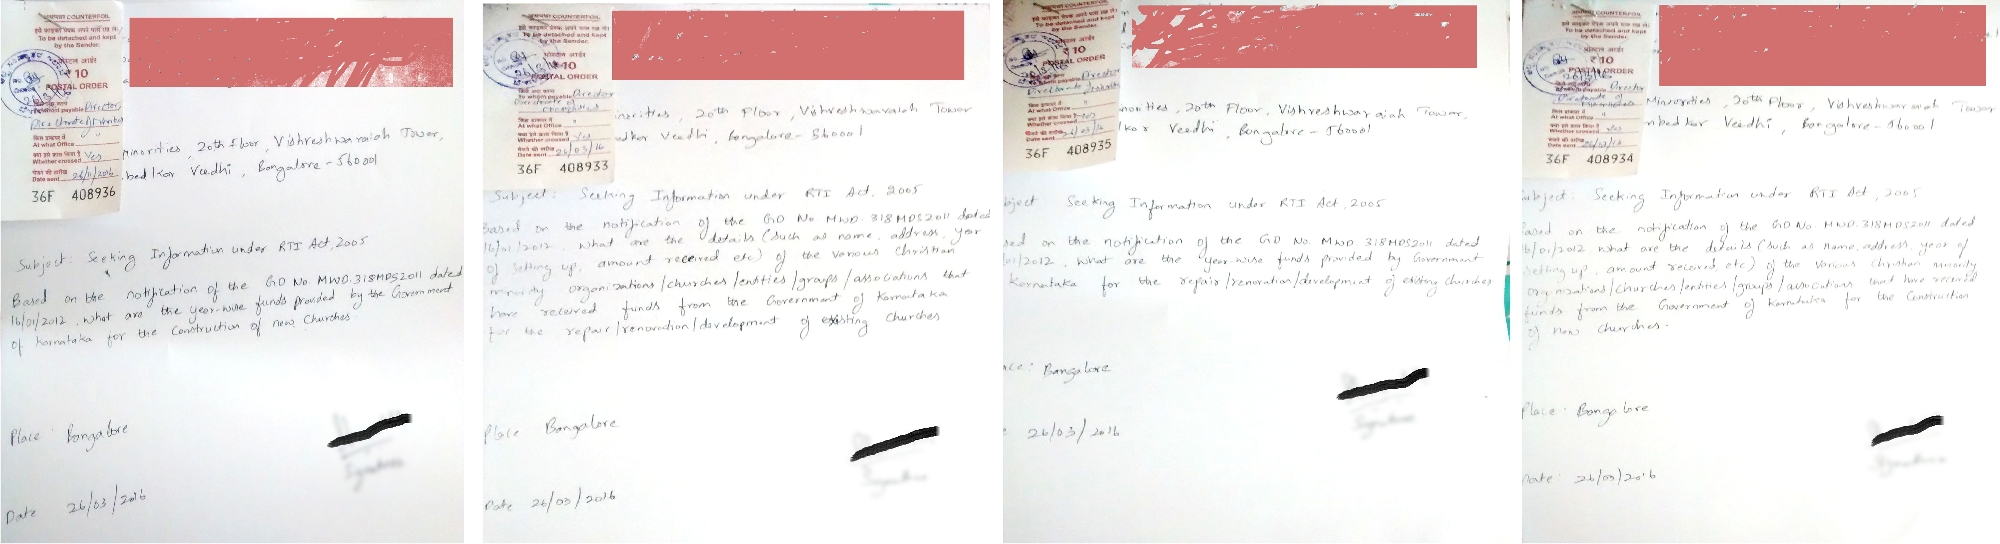 COUNTERFOIL
To be detached and kept
by the Sender.
₹ 10
POSTAL ORDER
Director,
At what Office
Whether crossed Yes
Date sent
36F 408936
Minorities, 20th Floor, Vishveshwaraiah Tower,
Veedhi, Bangalore - 560001
Subject: Seeking Information under RTI Act, 2005
Based on the notification of the GO No. MWD.318MDS2011 dated
16/01/2012, what are the year-wise funds provided by the Government
of Karnataka for the Construction of new Churches.
Place: Bangalore
Date 26/03/2016
COUNTERFOIL
To be detached and kept
by the Sender.
₹ 10
POSTAL ORDER
To whom payable Director
At what Office
Whether crossed Yes
Date sent 26/03/16
36F 408933
inorities, 20th Floor, Vishveshwaraiah Tower
Veedhi, Bangalore - 560001
Subject: Seeking Information under RTI Act. 2005
Based on the notification of the GO No MWD.318MDS2011 dated
16/01/2012, What are the details (such as name, address, year
of setting up, amount received etc) of the various Christian
minority organizations/churches/entities/groups/associations that
have received funds from the Government of Karnataka
for the repair/renovation/development of existing Churches
Place Bangalore
Date 26/03/2016
To be detached and kept
by the Sender.
₹ 10
POSTAL ORDER
Director
At what Office
Whether crossed
Date sent
36F 408935
norities, 20th Floor, Vishveshwaraiah Tower,
Veedhi, Bangalore - 560001
bject Seeking Information under RTI Act, 2005
sed on the notification of the GO No. MWD.318MDS2011 dated
01/2012, What are the year-wise funds provided by Government
Karnataka for the repair/renovation/development of existing churches
ace: Bangalore
26/03/2016
COUNTERFOIL
To be detached and kept
by the Sender.
₹ 10
POSTAL ORDER
Director
At what Office
Whether crossed Yes
Date sent
36F 408934
Minorities, 20th Floor, Vishveshwaraiah Tower
bedkar Veedhi, Bangalore - 560001
Subject: Seeking Information under RTI Act, 2005
Based on the notification of the GO No. MWD.318MDS2011 dated
16/01/2012 what are the details (such as name, address, year of
setting up, amount received, etc) of the various christian minority
organizations/churches/entities/groups/associations that have received
funds from the Government of Karnataka for the Construction
of new churches.
Place: Bangalore
Date: 26/03/2016